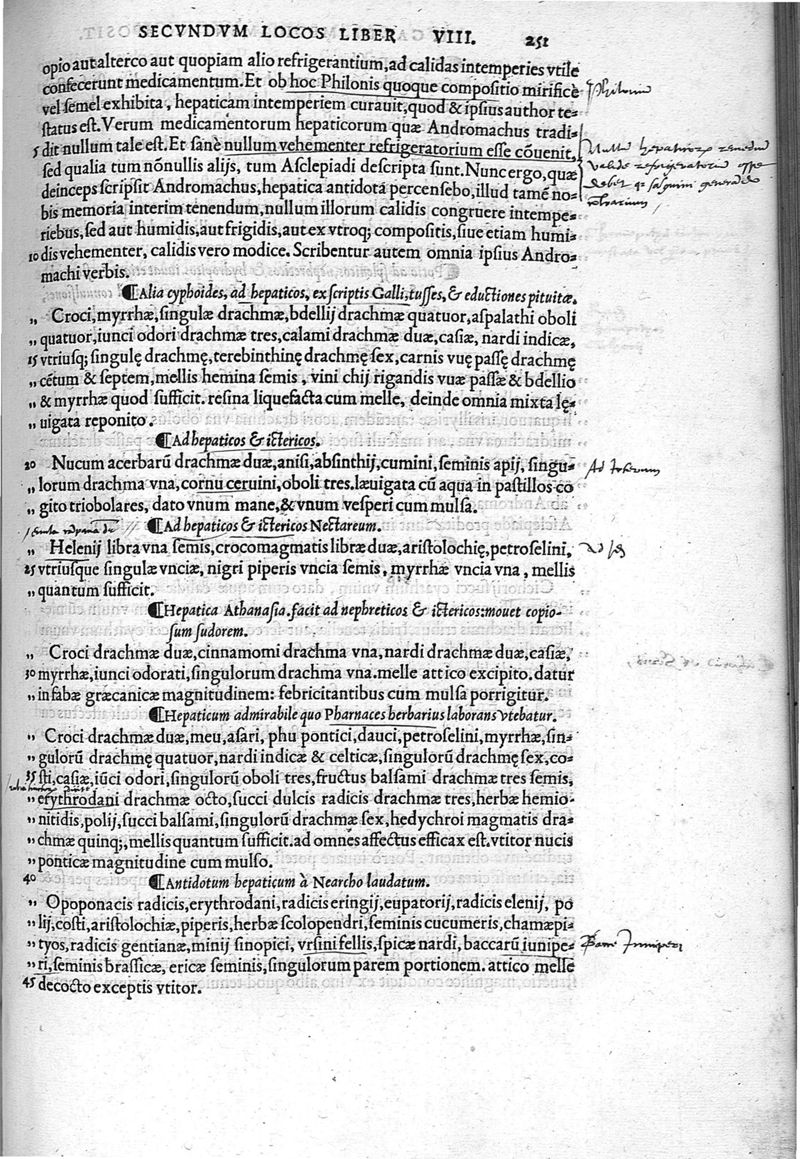 SECVNDVM LOCOS LIBER VIII. 251
opio aut alterco aut quopiam alio refrigerantium, ad calidas intemperies vtile
confecerunt medicamentum. Et ob hoc Philonis quoque compositio mirificè
vel semel exhibita, hepaticam intemperiem curauit, quod & ipsius author te-
status est. Verum medicamentorum hepaticorum quæ Andromachus tradi-
5 dit nullum tale est. Et sanè nullum vehementer refrigeratorium esse cõuenit,
sed qualia tum nõnullis alijs, tum Asclepiadi descripta sunt. Nunc ergo, quæ
deinceps scripsit Andromachus, hepatica antidota percensebo, illud tamẽ no-
bis memoria interim tenendum, nullum illorum calidis congruere intempe-
riebus, sed aut humidis, aut frigidis, aut ex vtroq; compositis, siue etiam humi-
10 dis vehementer, calidis vero modice. Scribentur autem omnia ipsius Andro-
machi verbis.
¶Alia cyphoides, ad hepaticos, ex scriptis Galli, tusses, & eductiones pituitæ.
„ Croci, myrrhæ, singulæ drachmæ, bdellij drachmæ quatuor, aspalathi oboli
„ quatuor, iunci odori drachmæ tres, calami drachmæ duæ, casiæ, nardi indicæ,
15 vtriusq; singulę drachmę, terebinthinę drachmę sex, carnis vuę passę drachmę
„ cẽtum & septem, mellis hemina semis, vini chij rigandis vuæ passæ & bdellio
„ & myrrhæ quod sufficit. resina liquefacta cum melle, deinde omnia mixta lę-
„ uigata reponito.
¶Ad hepaticos & ictericos.
20 Nucum acerbarũ drachmæ duæ, anisi, absinthij, cumini, seminis apij, singu-
„ lorum drachma vna, cornu ceruini, oboli tres. læuigata cũ aqua in pastillos co
„ gito triobolares, dato vnum mane, & vnum vesperi cum mulsa.
¶Ad hepaticos & ictericos Nectareum.
„ Helenij libra vna semis, crocomagmatis libræ duæ, aristolochię, petroselini,
25 vtriusque singulæ vnciæ, nigri piperis vncia semis, myrrhæ vncia vna, mellis
„ quantum sufficit.
¶Hepatica Athanasia. facit ad nephreticos & ictericos: mouet copio-
sum sudorem.
„ Croci drachmæ duæ, cinnamomi drachma vna, nardi drachmæ duæ, casiæ,
30 myrrhæ, iunci odorati, singulorum drachma vna. melle attico excipito. datur
„ in fabæ græcanicæ magnitudinem: febricitantibus cum mulsa porrigitur.
¶Hepaticum admirabile quo Pharnaces herbarius laborans vtebatur.
„ Croci drachmæ duæ, meu, asari, phu pontici, dauci, petroselini, myrrhæ, sin-
„ gulorũ drachmę quatuor, nardi indicæ & celticæ, singulorũ drachmę sex, co-
35 sti, casiæ, iũci odori, singulorũ oboli tres, fructus balsami drachmæ tres semis,
„ erythrodani drachmæ octo, succi dulcis radicis drachmæ tres, herbæ hemio-
„ nitidis, polij, succi balsami, singulorũ drachmæ sex, hedychroi magmatis dra-
„ chmæ quinq;, mellis quantum sufficit. ad omnes affectus efficax est. vtitor nucis
„ ponticæ magnitudine cum mulso.
40 ¶Antidotum hepaticum à Nearcho laudatum.
„ Opoponacis radicis, erythrodani, radicis eringij, eupatorij, radicis elenij, po
„ lij, costi, aristolochiæ, piperis, herbæ scolopendri, seminis cucumeris, chamæpi-
„ tyos, radicis gentianæ, minij sinopici, vrsini fellis, spicæ nardi, baccarũ iunipe-
„ ri, seminis brassicæ, ericæ seminis, singulorum parem portionem. attico melle
45 decocto exceptis vtitor.
Philonium
Nullum hepaticorum remedium
valide refrigeratorium esse
debet
Ad Ictericum
Juniperi